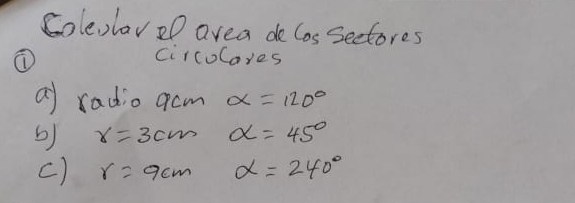 Colcular el area de los Sectores
Circulares
①
a) radio 9cm α = 120°
b) r = 3cm α = 45°
c) r = 9cm α = 240°